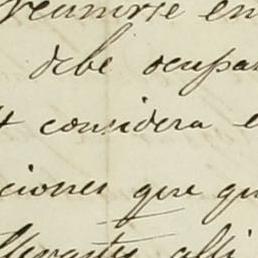 reunirse en
debe ocupar
considera e
ciones que qu
alli